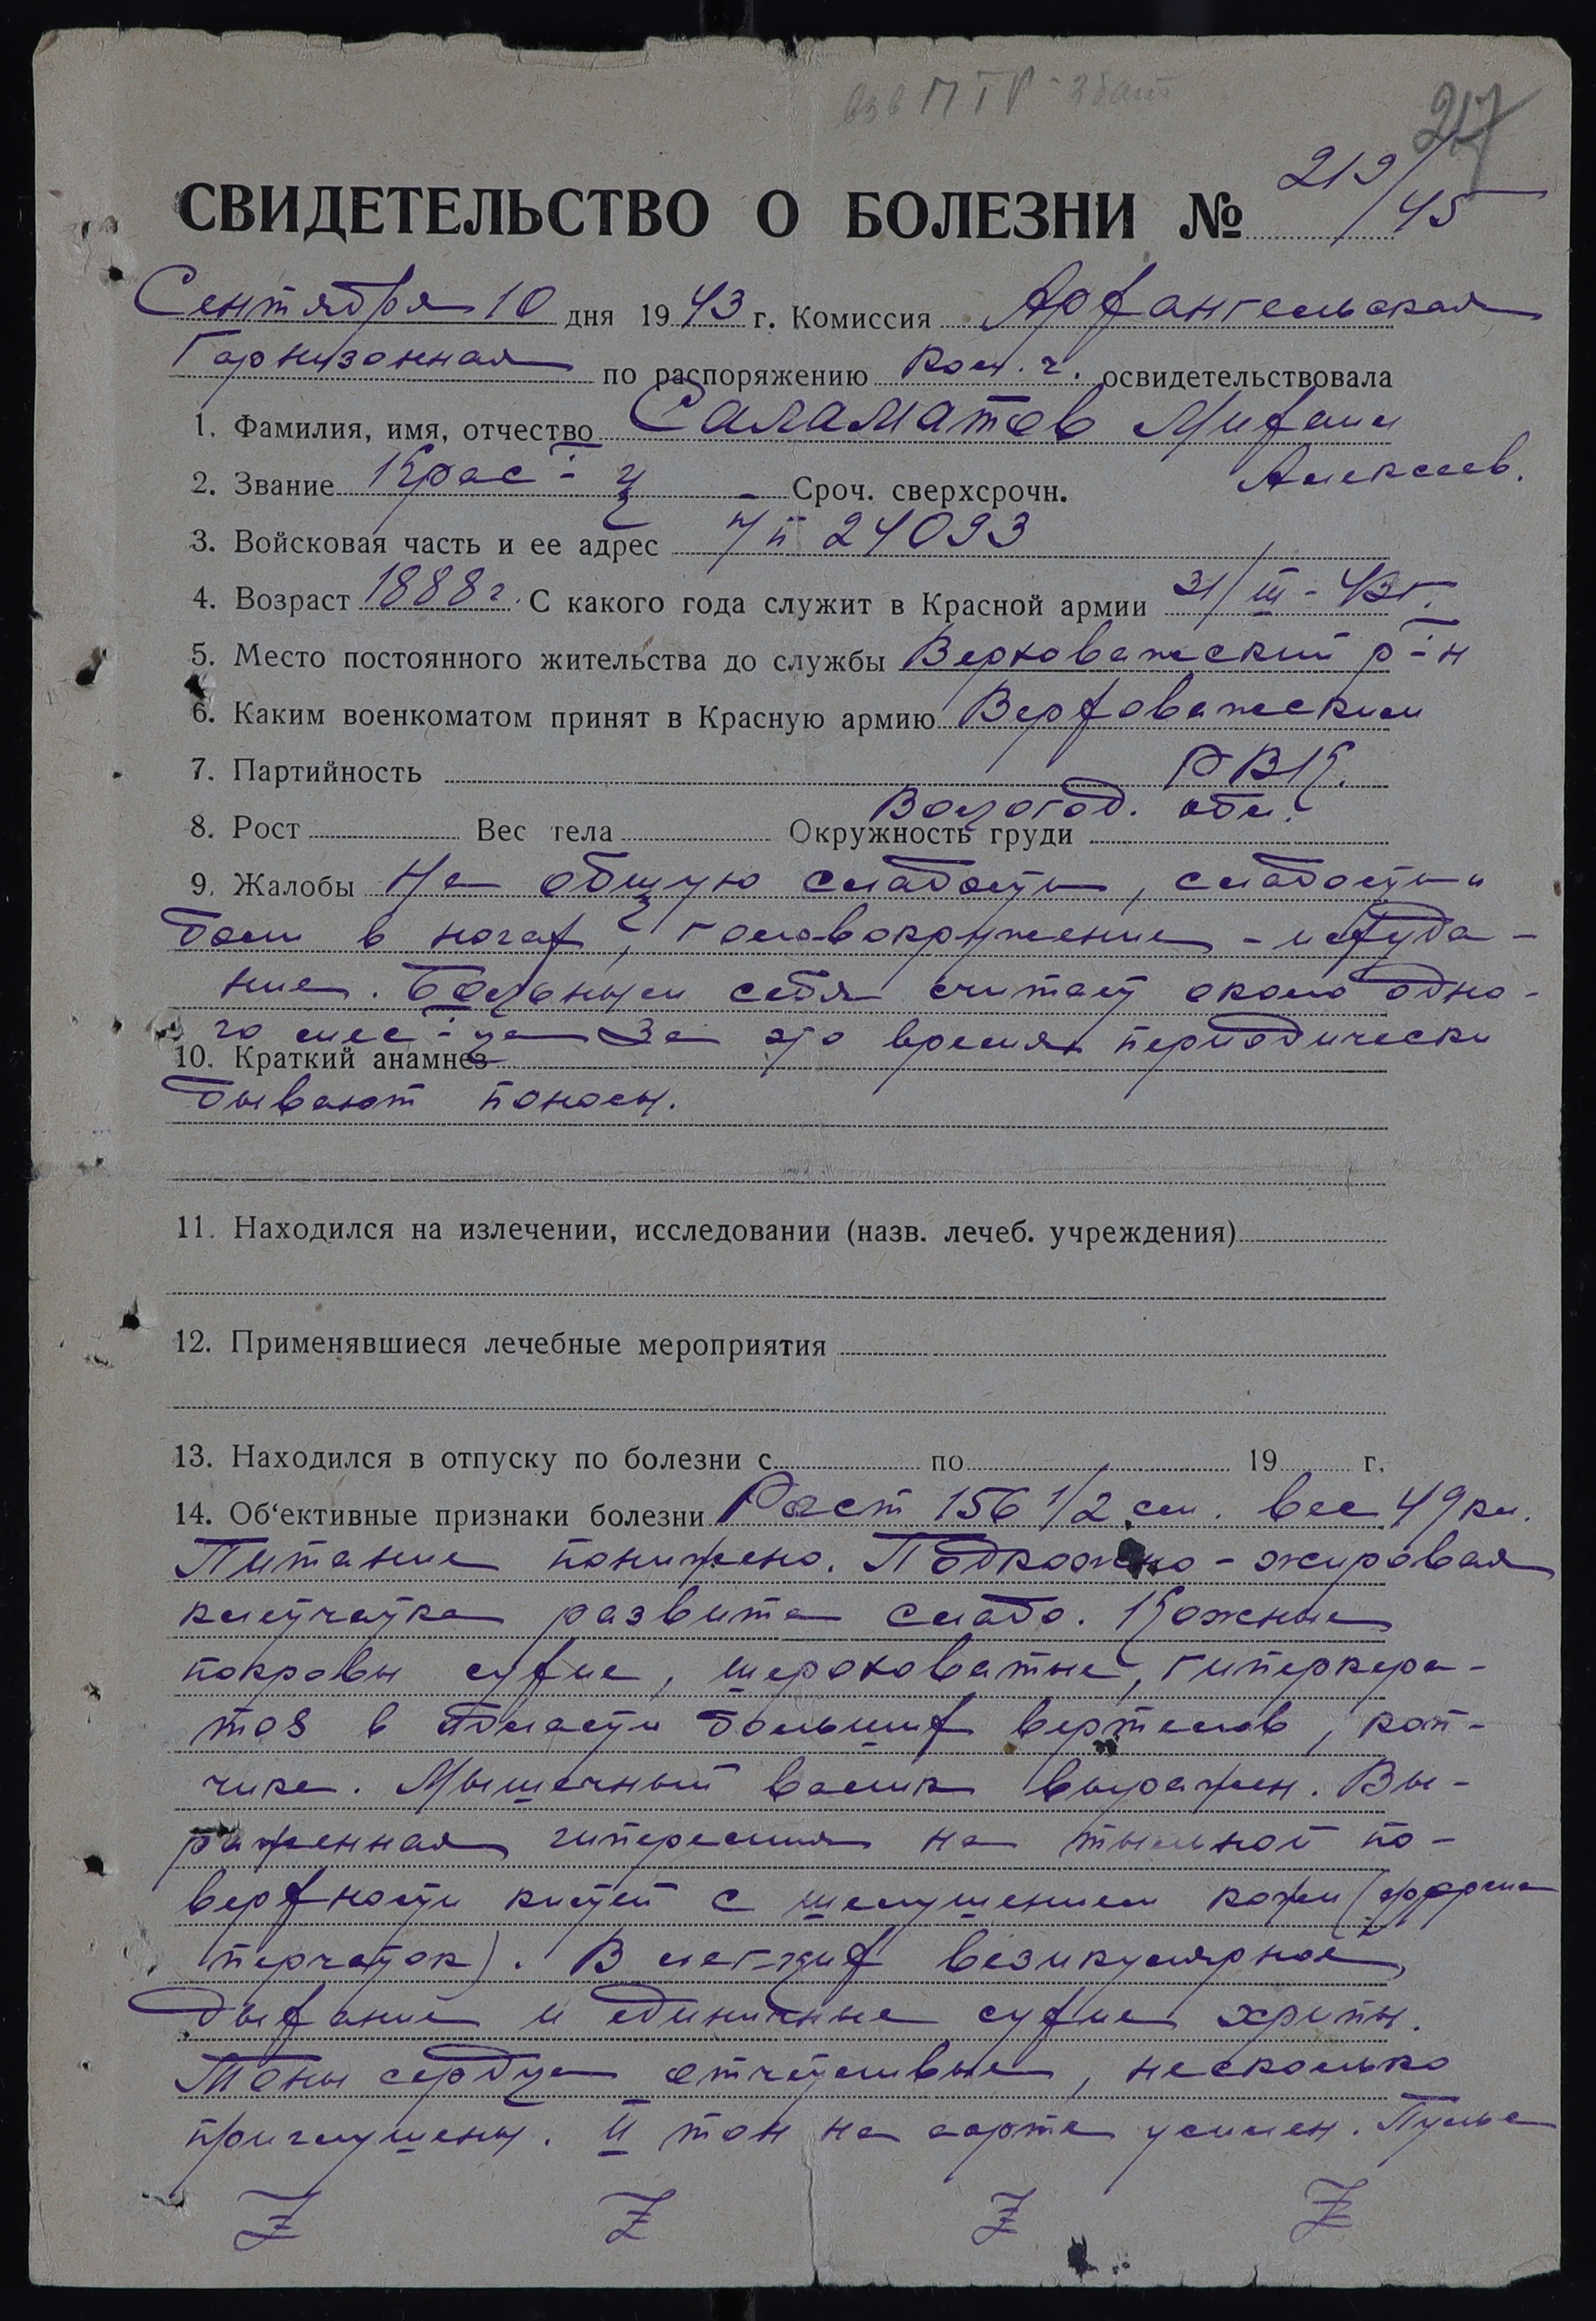 217
СВИДЕТЕЛЬСТВО О БОЛЕЗНИ № 219/45
Сентября 10 дня 1943 г. Комиссия Архангельская
Гарнизонная по распоряжению ком. ч. освидетельствовала
1. Фамилия, имя, отчество Саламатов Михаил
Алексеев.
2. Звание Крас-ц Сроч. сверхсрочн.
3. Войсковая часть и ее адрес п/п 24093
4. Возраст 1888 г. С какого года служит в Красной армии 31/III-43г.
5. Место постоянного жительства до службы Верховажский р-н
6. Каким военкоматом принят в Красную армию Верховажским
7. Партийность РВК.
Вологод. обл.
8. Рост Вес тела Окружность груди
9. Жалобы На общую слабость, слабость и
боли в ногах, головокружение - исхуда-
ние. Больным себя считает около одно-
го мес-ца За это время периодически
10. Краткий анамнез
бывают поносы.
11. Находился на излечении, исследовании (назв. лечеб. учреждения)
12. Применявшиеся лечебные мероприятия
13. Находился в отпуску по болезни с по 19 г.
14. Об'ективные признаки болезни Рост 156 1/2 см. вес 49 кл.
Питание понижено. Подкожно-жировая
клетчатка развита слабо. Кожные
покровы сухие, шероховатые, гиперкера-
тоз в области больших вертелов, коп-
чике. Мышечный валик выражен. Вы-
раженная гиперемия на тыльной по-
верхности кистей с шелушением кожи (форма
перчаток). В лег-ких везикулярное
дыхание и единичные сухие хрипы.
Тоны сердца отчетливые, несколько
приглушены. II тон на аорте усилен. Пульс
Z Z Z Z